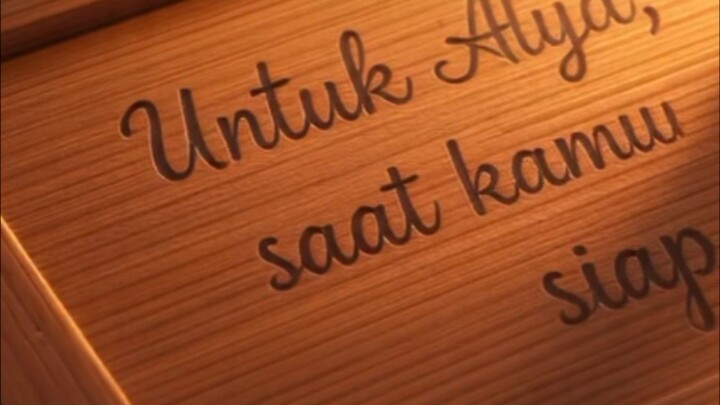 Untuk Alya,
saat kamu
siap